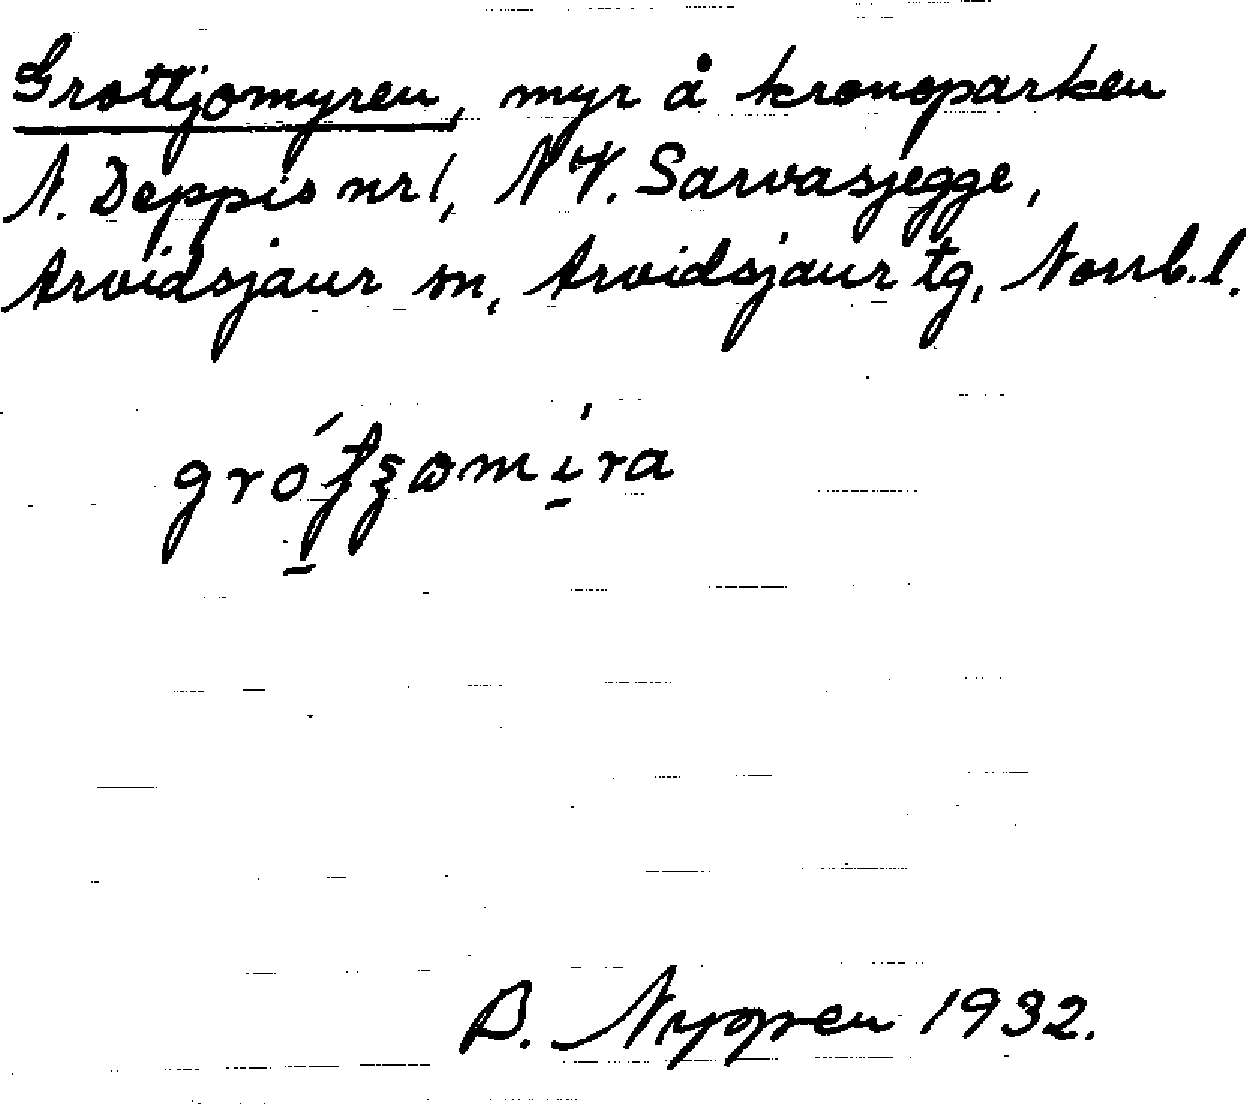 Grottjomyren, myr å kronoparken
N. Deppis nr 1, N V. Sarvasjegge,
Arvidsjaur sn, Arvidsjaur tg, Norrb. l.
B. Nygren 1932.